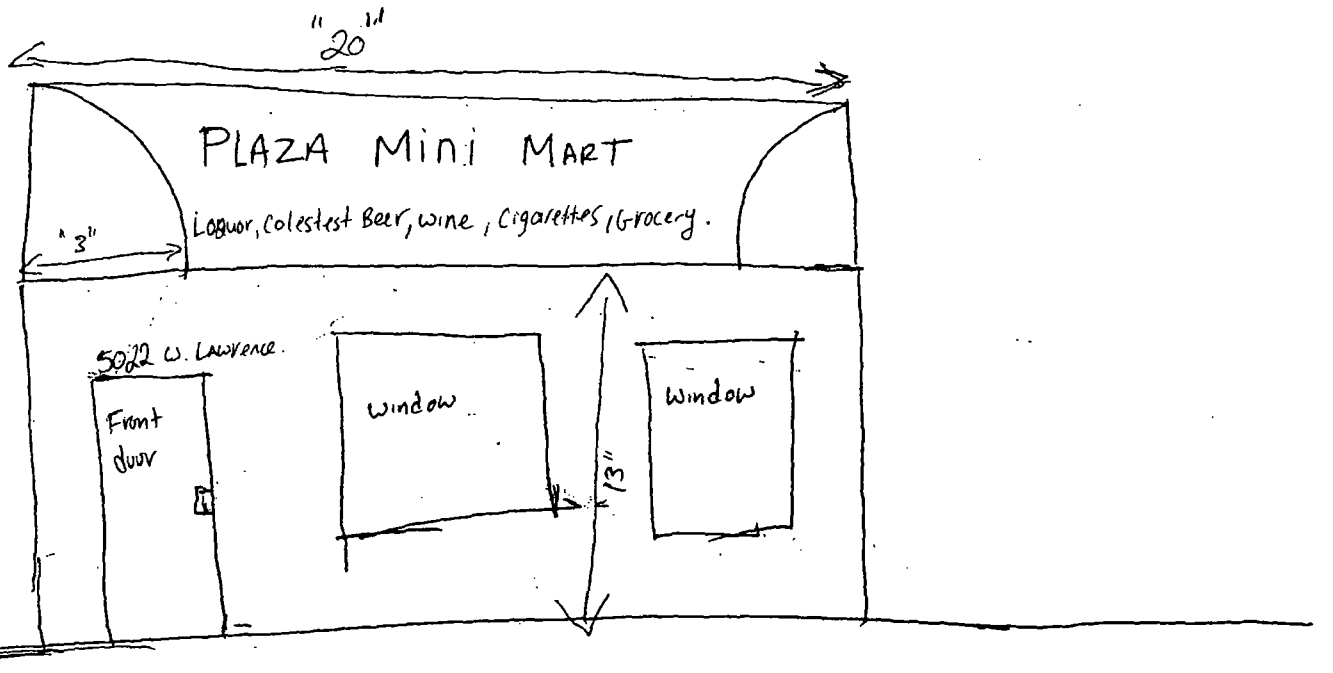 "20"
PLAZA Mini MART
Loquor, Colestest Beer, wine, Cigarettes, Grocery.
"3"
5022 W. Lawrence.
window
window
Front
door
13"